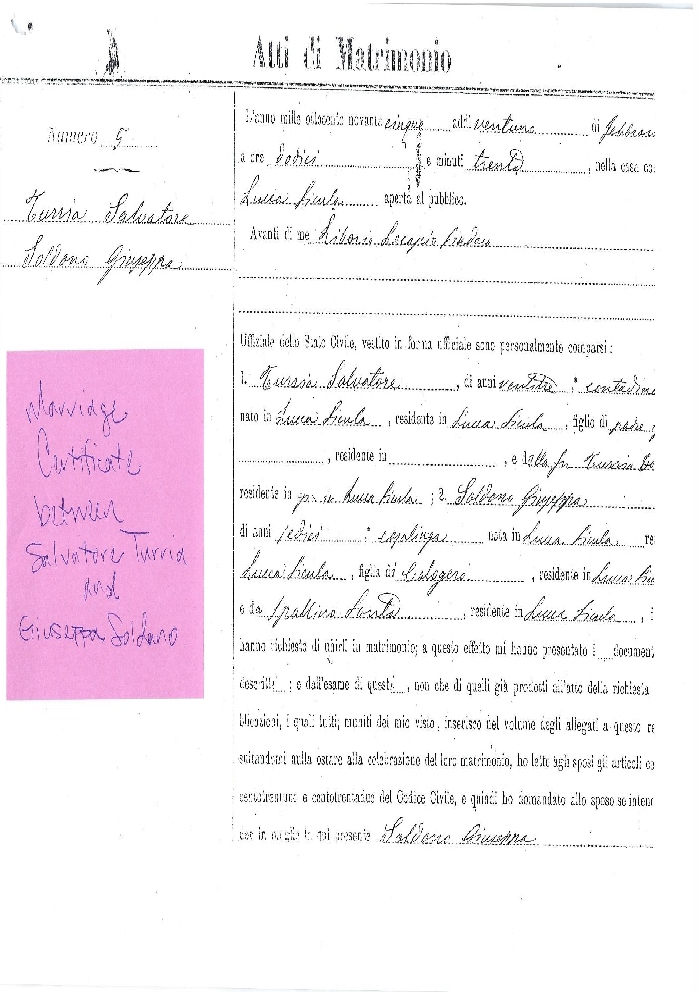 Atti di Matrimonio
Numero 5
Turria Salvatore
Soldano Giuseppa
L'anno mille ottocento novanta cinque addì ventuno di Febbra
a ore dodici e minuti trenta, nella casa co
Lucca Sicula aperta al pubblico.
Avanti di me Liborio
Uffiziale dello Stato Civile, vestito in forma ufficiale sono personalmente comparsi:
1. Turria Salvatore, di anni ventitre, contadino
nato in Lucca Sicula, residente in Lucca Sicula, figlio di padre
, residente in , e dalla fu Turria
residente in Lucca Sicula; 2. Soldano Giuseppa
di anni sedici casalinga nata in Lucca Sicula re
Lucca Sicula, figlia di Calogero, residente in Lucca
e da Spallino, residente in Lucca Sicula,
hanno richiesto di unirli in matrimonio; a questo effetto mi hanno presentato i document
descritti; e dall'esame di questi, non che di quelli già prodotti all'atto della richiesta
blicazioni, i quali tutti, muniti del mio visto, inserisco nel volume degli allegati a questo re
sultandomi nulla ostare alla celebrazione del loro matrimonio, ho letto agli sposi gli articoli ce
centotrentuno e centotrentadue del Codice Civile, e quindi ho domandato allo sposo se intend
in moglie la qui presente Soldano Giuseppa
Marriage
Certificate
between
Salvatore Turria
and
Giuseppa Soldano